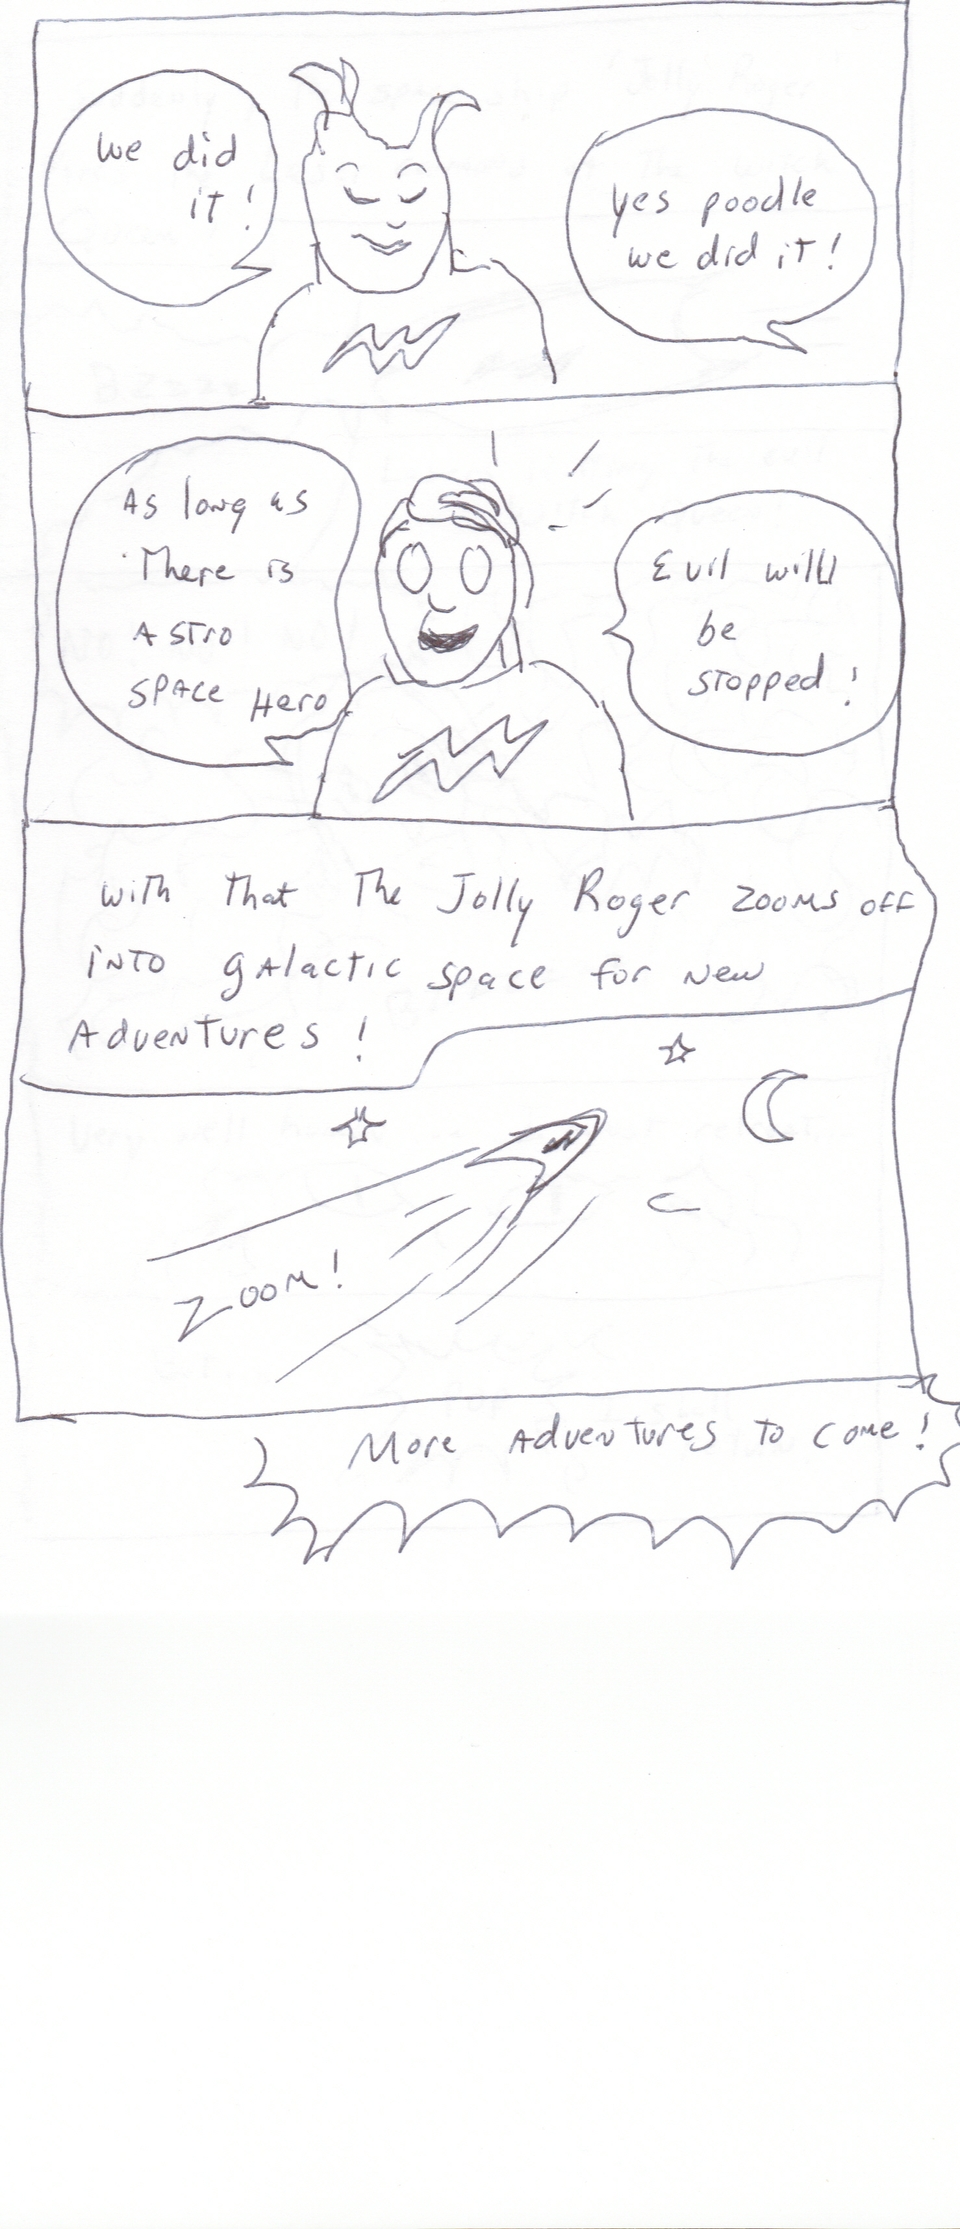 we did
it!
yes poodle
we did it!
As long as
There is
Astro
Space Hero
Evil will
be
stopped!
with that The Jolly Roger zooms off
into galactic space for new
Adventures!
Zoom!
More Adventures to come!